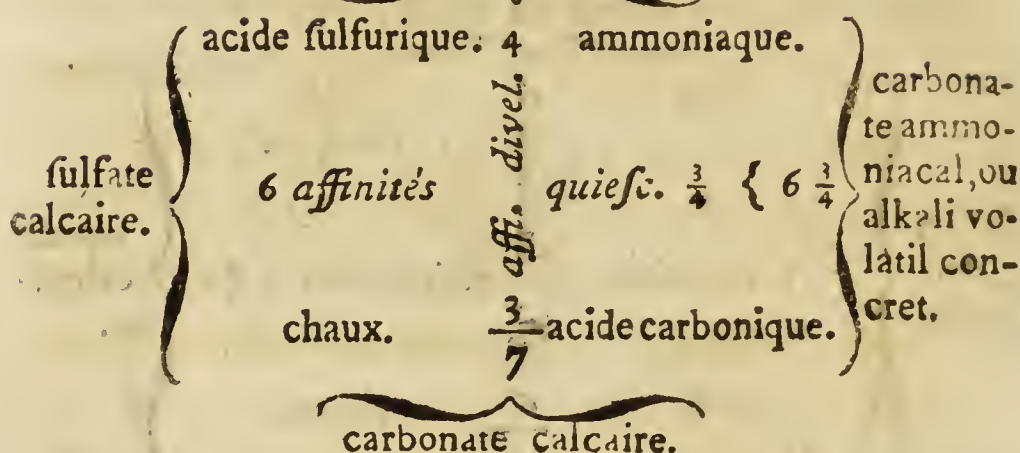 acide ſulfurique. 4 ammoniaque.
ſulfate calcaire.
6 affinités quieſc. 3/4 { 6 3/4
affi. divel.
carbona-
te ammo-
niacal, ou
alkali vo-
latil con-
cret.
chaux. 3 acide carbonique.
7
carbonate calcaire.